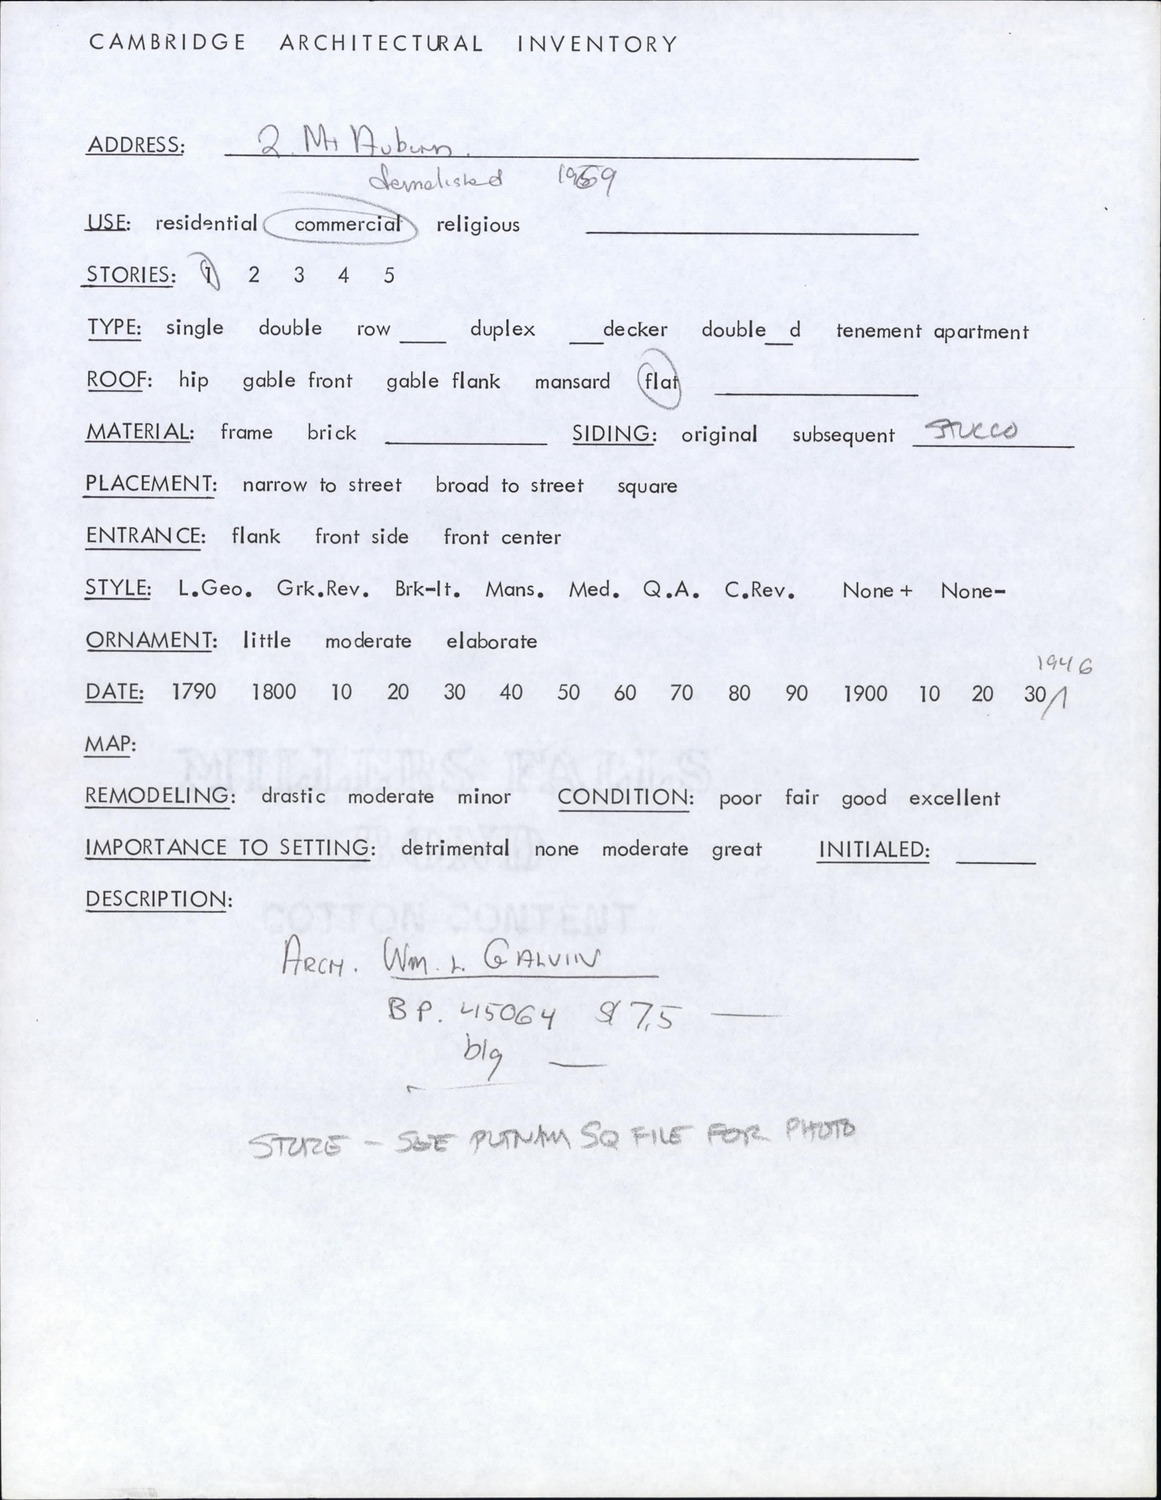 CAMBRIDGE ARCHITECTURAL INVENTORY
ADDRESS: 2 Mt Auburn
demolished 1969
USE: residential commercial religious
STORIES: 1 2 3 4 5
TYPE: single double row ___ duplex ___decker double__d tenement apartment
ROOF: hip gable front gable flank mansard flat
MATERIAL: frame brick ___ SIDING: original subsequent STUCCO
PLACEMENT: narrow to street broad to street square
ENTRANCE: flank front side front center
STYLE: L.Geo. Grk.Rev. Brk-It. Mans. Med. Q.A. C.Rev. None + None-
ORNAMENT: little moderate elaborate
1946
DATE: 1790 1800 10 20 30 40 50 60 70 80 90 1900 10 20 30
MAP:
MILLERS FALLS
REMODELING: drastic moderate minor CONDITION: poor fair good excellent
IMPORTANCE TO SETTING: detrimental none moderate great INITIALED: ___
DESCRIPTION:
COTTON CONTENT
ARCH. WM. L. GALVIN
BP. 45064 $ 7,5 —
blg —
STORE - SEE PUTNAM SQ FILE FOR PHOTO